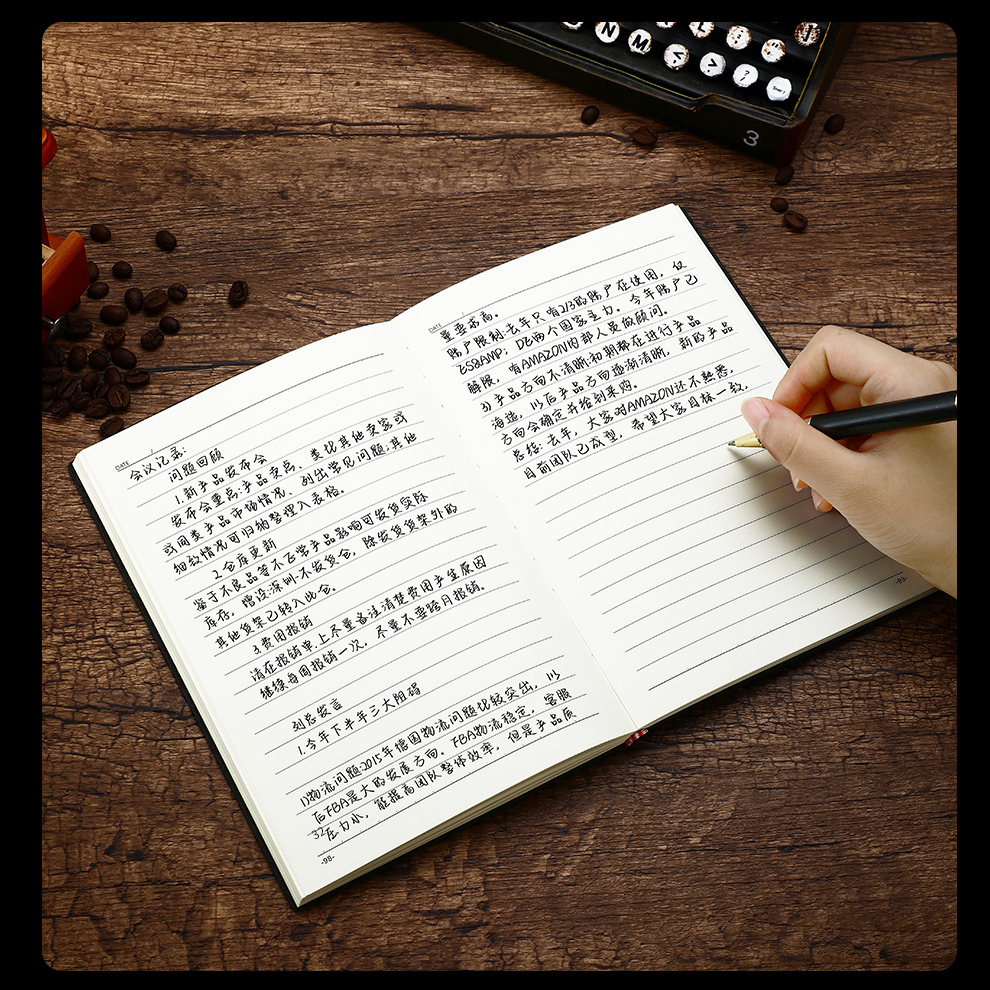 N M < > ?
3
DATE /
会议记录:
问题回顾
1.新产品发布会
发布会重点:产品卖点、类比其他卖家或
或同类产品市场情况、列出常见问题;其他
细致情况可归纳整理入表格。
2.仓库更新
鉴于不良品等不正常产品影响可发货实际
库存,增设深圳不发货仓,除发货货架外的
其他货架已转入此仓。
3.费用报销
请在报销单上尽量备注清楚费用产生原因
继续每周报销一次,尽量不要跨月报销。
刘总发言
1.今年下半年三大阻碍
1)物流问题:2015年德国物流问题比较突出,以
后FBA是大的发展方向。FBA物流稳定,客服
压力小,能提高团队整体效率,但是产品质
32
-98-
DATE
量要求高。
账户限制:去年只有2/3的账户在使用,仅
ES&AMP; DE两个国家主力。今年账户已
解限,有AMAZON内部人员做顾问。
3)产品方面不清晰:初期都在进行产品
海选,以后产品方面逐渐清晰,新的产品
方面会确定并给到采购。
总结:去年,大家对AMAZON还不熟悉,
目前团队已成型,希望大家目标一致,
-99-